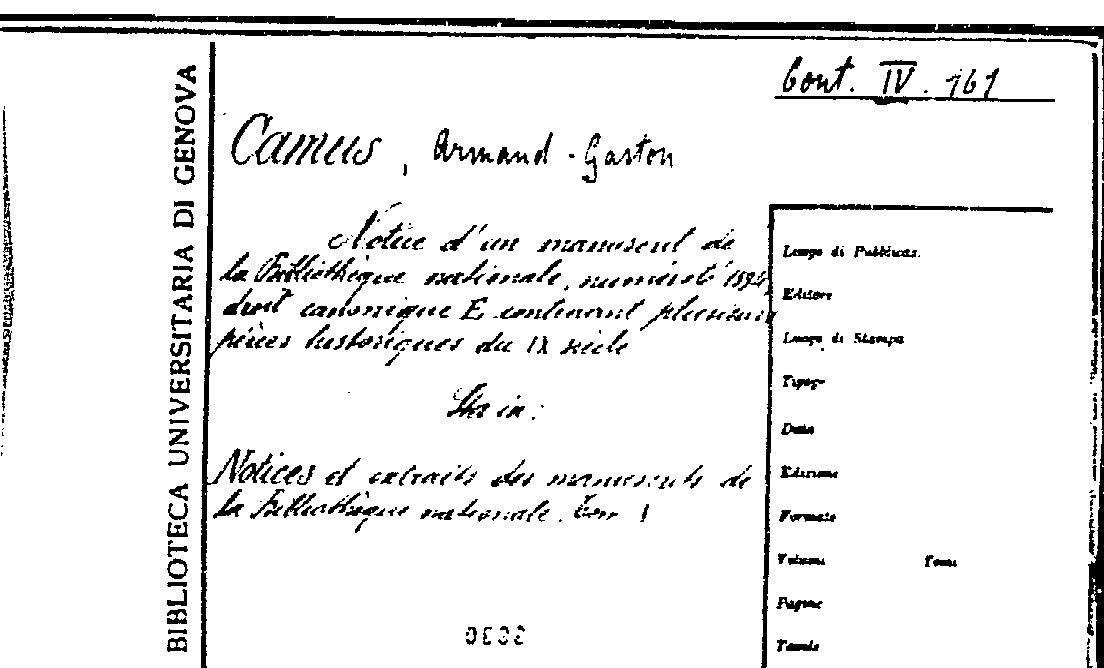 Cont. IV. 161
BIBLIOTECA UNIVERSITARIA DI GENOVA
Camus, Armand-Gaston
Notice d'un manuscrit de
la Bibliothèque nationale, numéroté 1594,
droit canonique E, contenant plusieurs
pièces historiques du IX siècle
Sta in:
Notices et extraits des manuscrits de
la Bibliothèque nationale. Tom I
Luogo di Pubblicaz.
Editore
Luogo di Stampa
Tipogr
Data
Edizione
Formato
Volumi Tomi
Pagine
Tavole